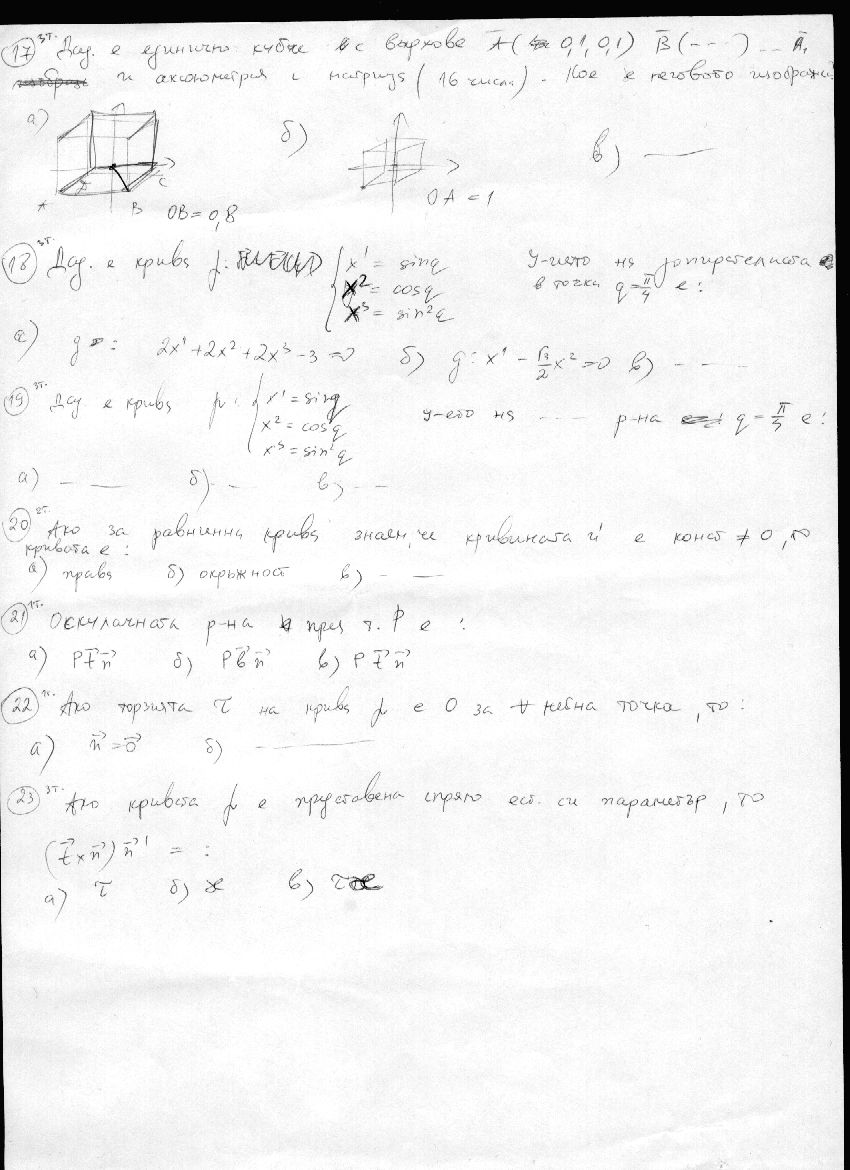 17) 3т. Дад. е единично кубче с върхове Ā(0,1,0,1) B̄(---) ... Ā₁
и аксонометрия с матрица (16 числа). Кое е неговото изображ
а) б) в) ——
A B C OB = 0,8 OA = 1
18) 3т. Дад. е крива p: { x¹ = sinq У-ието на допирателната
x² = cosq в точка q = π/4 е:
x³ = sin²q
а) g: 2x¹+2x²+2x³-3=0 б) g: x¹ - √3/2 x² = 0 в) - ——
19) 3т. Дад. е крива p: { x¹ = sinq
x² = cosq У-ето на ---- р-на q = π/3 е:
x³ = sin²q
а) - —— б) - — в) - —
20) 2т. Ако за равнинна крива знаем, че кривината и е конст ≠ 0, то
кривата е:
а) права б) окръжност в) - ——
21) 1т. Оскулачната р-на през т. P е :
а) P t⃗ n⃗ б) P b⃗ n⃗ в) P t⃗ n⃗
22) 1т. Ако торзията τ на крива p е 0 за ∀ нейна точка, то:
а) n⃗ = 0⃗ б) ————
23) 3т. Ако кривата p е представена спрямо ест. си параметър, то
(t⃗ × n⃗) n⃗' = :
а) τ б) ϰ в) τ